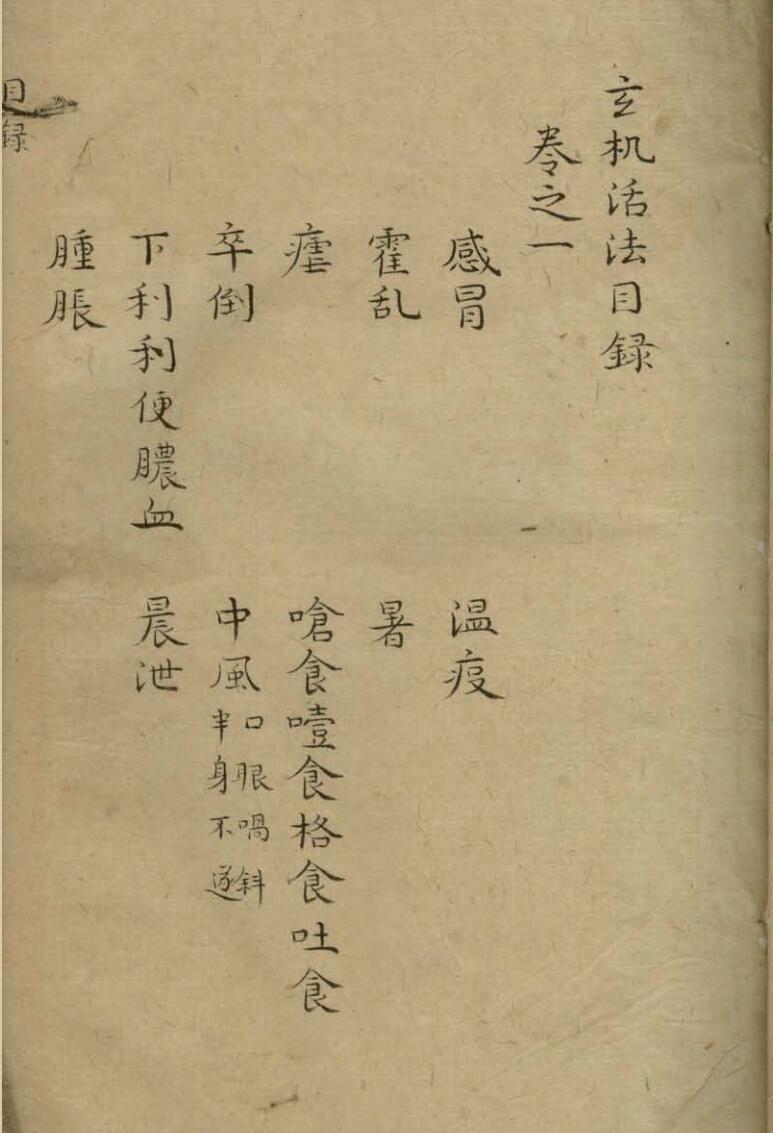 玄机活法目録
卷之一
感冒　温疫
霍乱　暑
瘧　嗆食噎食格食吐食
卒倒　中風口眼喎斜半身不遂
下利利便膿血　晨泄
腫脹
目録